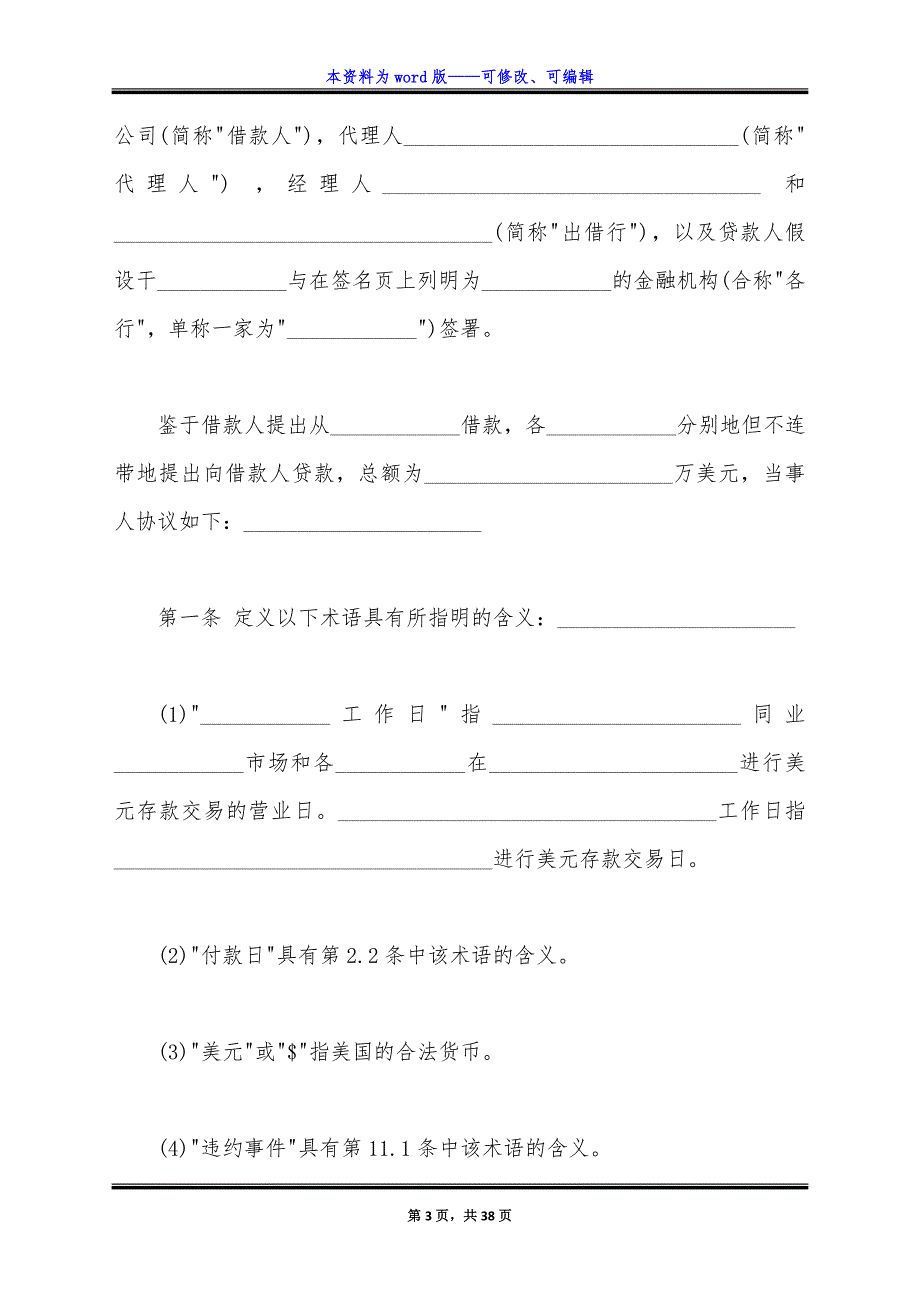 本资料为 word 版——可修改、可编辑
公司(简称"借款人")，代理人_______________________________(简称"
代理人")，经理人___________________________________和
___________________________________(简称"出借行")，以及贷款人假
设干____________与在签名页上列明为____________的金融机构(合称"各
行"，单称一家为"____________")签署。
鉴于借款人提出从____________借款，各____________分别地但不连
带地提出向借款人贷款，总额为_______________________万美元，当事
人协议如下：______________________
第一条 定义以下术语具有所指明的含义：______________________
(1)"____________工作日"指_______________________同业
____________市场和各____________在_______________________进行美
元存款交易的营业日。___________________________________工作日指
___________________________________进行美元存款交易日。
(2)"付款日"具有第 2.2 条中该术语的含义。
(3)"美元"或"$"指美国的合法货币。
(4)"违约事件"具有第 11.1 条中该术语的含义。
第 3 页，共 38 页